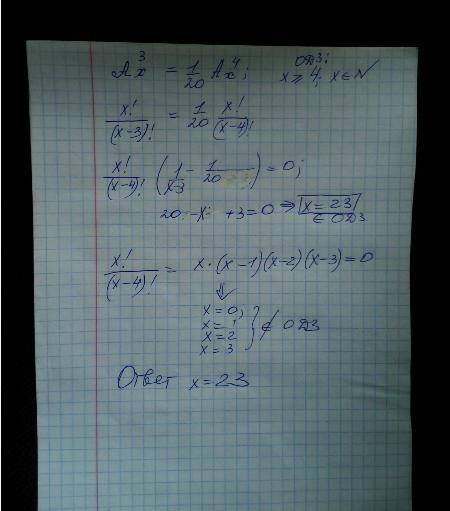 A³ₓ = 1/20 A⁴ₓ; ОДЗ: x ⩾ 4; x ∈ N
x!/(x-3)! = 1/20 x!/(x-4)!
x!/(x-4)! (1/(x-3) - 1/20) = 0;
20 - x + 3 = 0 ⇒ x = 23 ∈ ОДЗ
x!/(x-4)! = x·(x-1)(x-2)(x-3) = 0
⇓
x = 0;
x = 1
x = 2
x = 3 } ∉ ОДЗ
Ответ x = 23